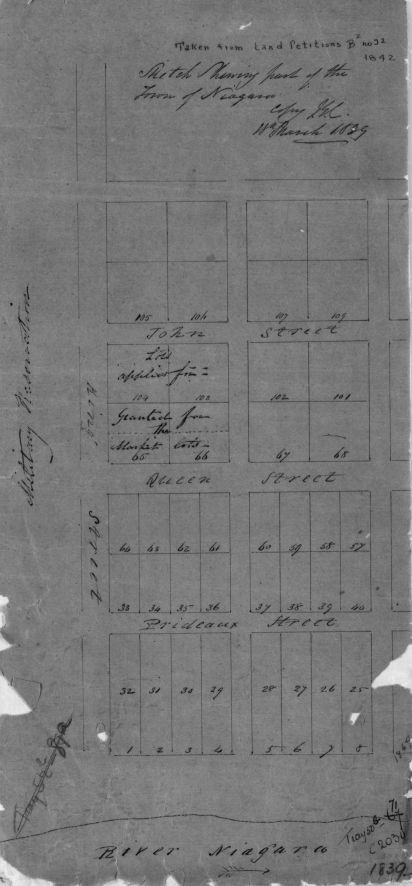 Taken from Land Petitions B² no 32
1842
Sketch Shewing part of the
Town of Niagara
Copy
March 1839
Military Reservation
105 106 107 108
John Street
Lots
applied for
104 103 102 101
Granted for
the
Market Lots
65 66 67 68
King Street
Queen Street
64 63 62 61 60 59 58 57
33 34 35 36 37 38 39 40
Prideaux Street
32 31 30 29 28 27 26 25
1 2 3 4 5 6 7 8
River Niagara
Tray 50
C 203
1839